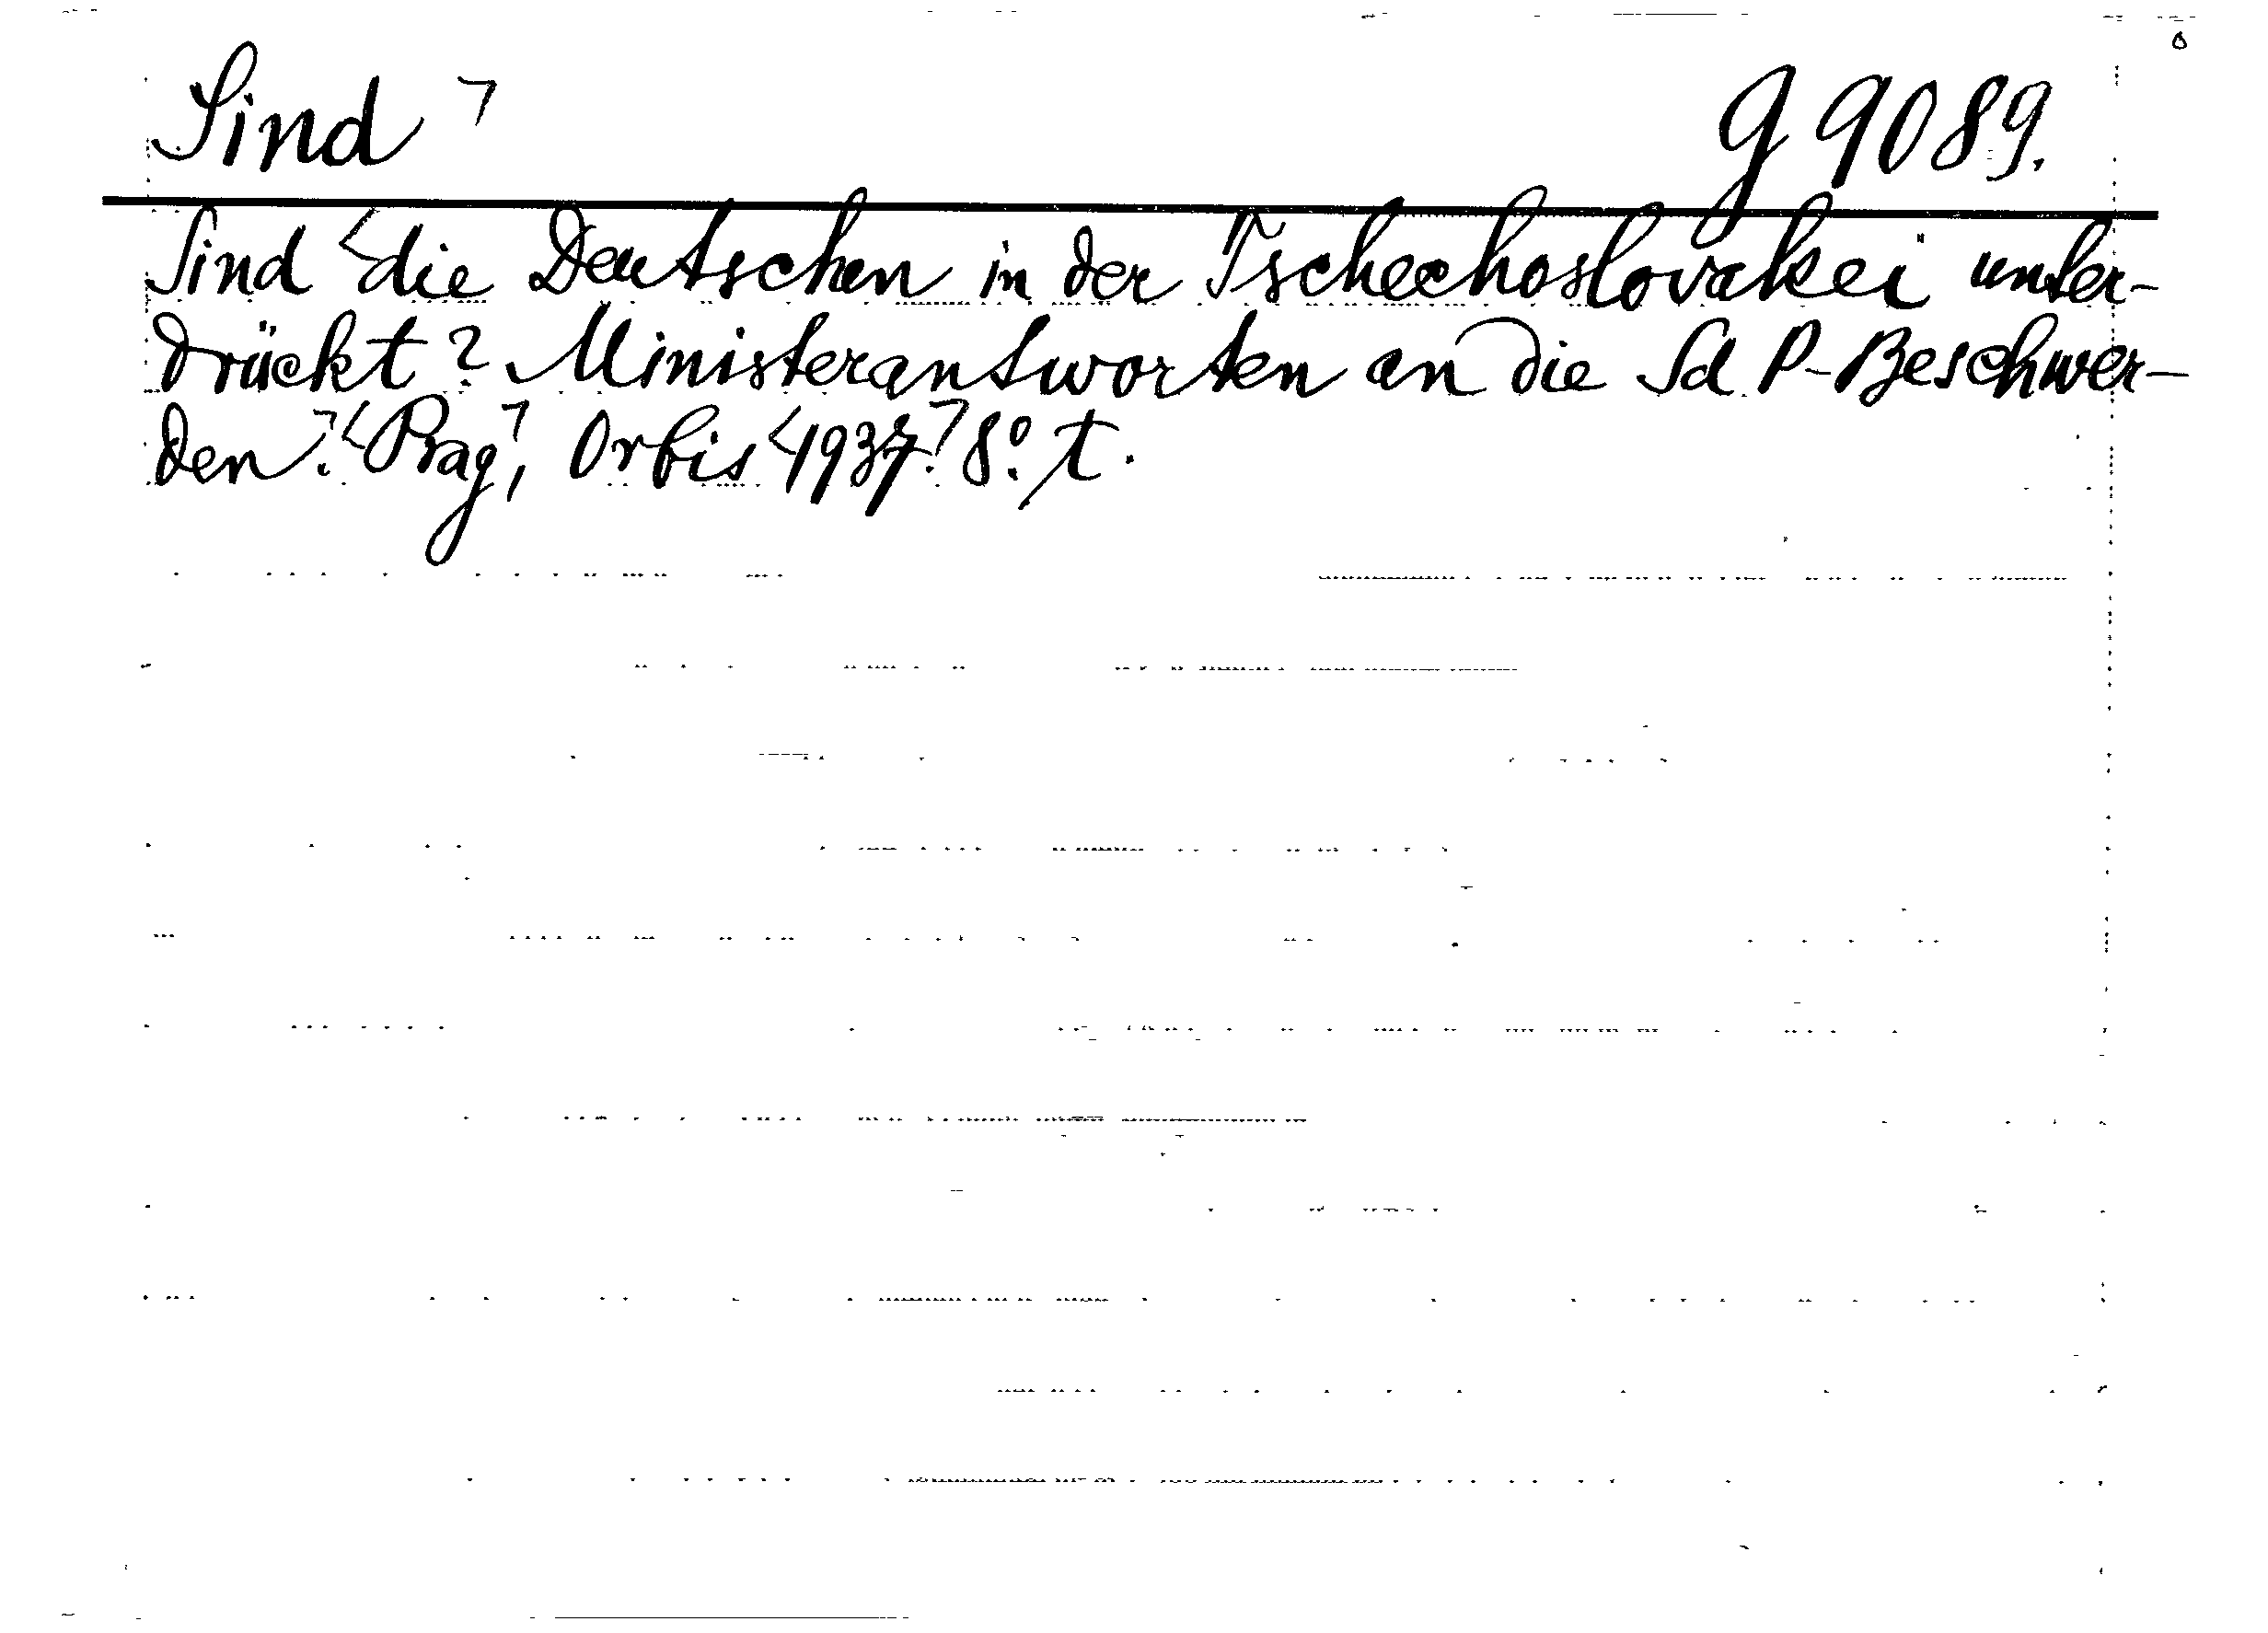 Sind ꓶ g 9089.
Sind <die Deutschen in der Tschechoslovakei unter-
drückt? Ministerantworten an die SdP-Beschwer-
den.ꓶ <Pragꓶ, Orbis <1937.ꓶ 8º. t.